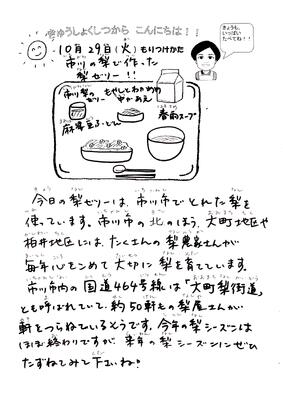 きゅうしょくしつから こんにちは！！
きょうも、
いっぱい
たべてね！！
10月29日(火) もりつけかた
市川の梨で作った
梨ゼリー！！
市川梨の
ゼリー
もやしとわかめの
中かあえ
春雨スープ
麻婆豆ふどん
今日の梨ゼリーは、市川市でとれた梨を
使っています。市川市の北のほう、大町地区や
柏井地区には、たくさんの梨農家さんが
毎年心をこめて大切に梨を育てています。
市川市内の国道464号線は「大町梨街道」
とも呼ばれていて、約50軒との梨屋さんが
軒をつらねているそうです。今年の梨シーズンは
ほぼ終わりですが、来年の梨シーズンにぜひ
たずねてみて下さいね！